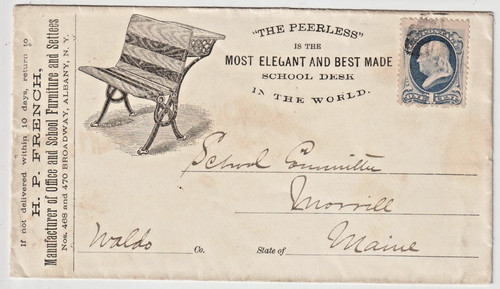 If not delivered within 10 days, return to
H. P. FRENCH,
Manufacturer of Office and School Furniture and Settees
Nos. 468 and 470 BROADWAY, ALBANY, N. Y.
"THE PEERLESS"
IS THE
MOST ELEGANT AND BEST MADE
SCHOOL DESK
IN THE WORLD.
School Committee
Morrill
Waldo Co. State of Maine